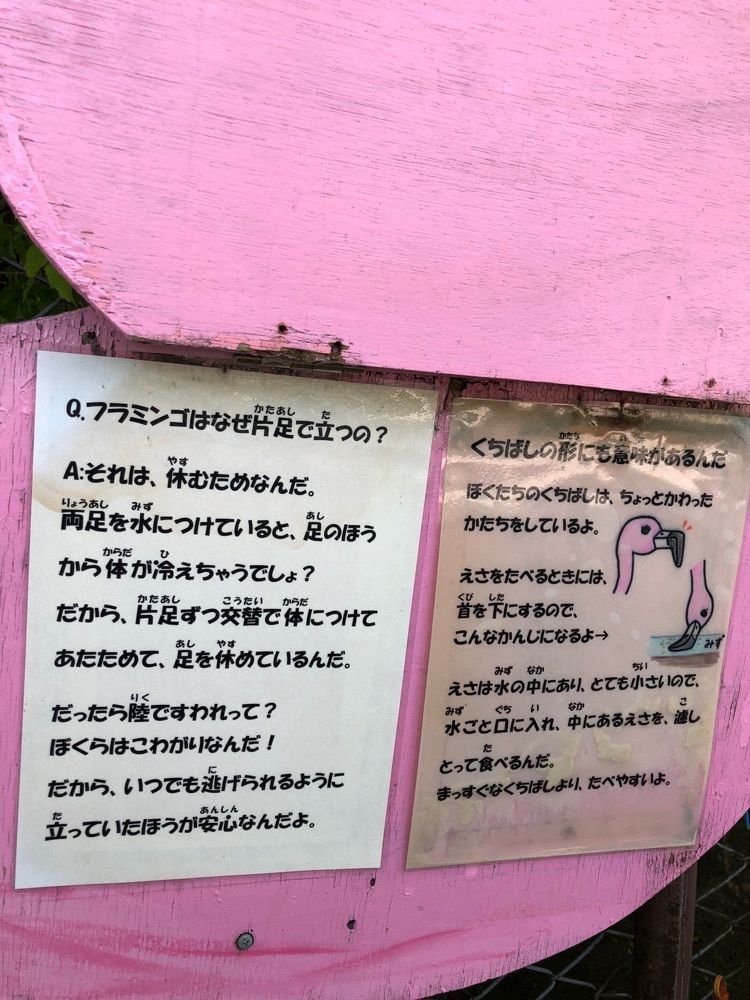 Q.フラミンゴはなぜ片足で立つの？
A:それは、休むためなんだ。
両足を水につけていると、足のほう
から体が冷えちゃうでしょ？
だから、片足ずつ交替で体につけて
あたためて、足を休めているんだ。
だったら陸ですわれって？
ぼくらはこわがりなんだ！
だから、いつでも逃げられるように
立っていたほうが安心なんだよ。
くちばしの形にも意味があるんだ
ぼくたちのくちばしは、ちょっとかわった
かたちをしているよ。
えさをたべるときには、
首を下にするので、
こんなかんじになるよ→
みず
えさは水の中にあり、とても小さいので、
水ごと口に入れ、中にあるえさを、濾し
とって食べるんだ。
まっすぐなくちばしより、たべやすいよ。